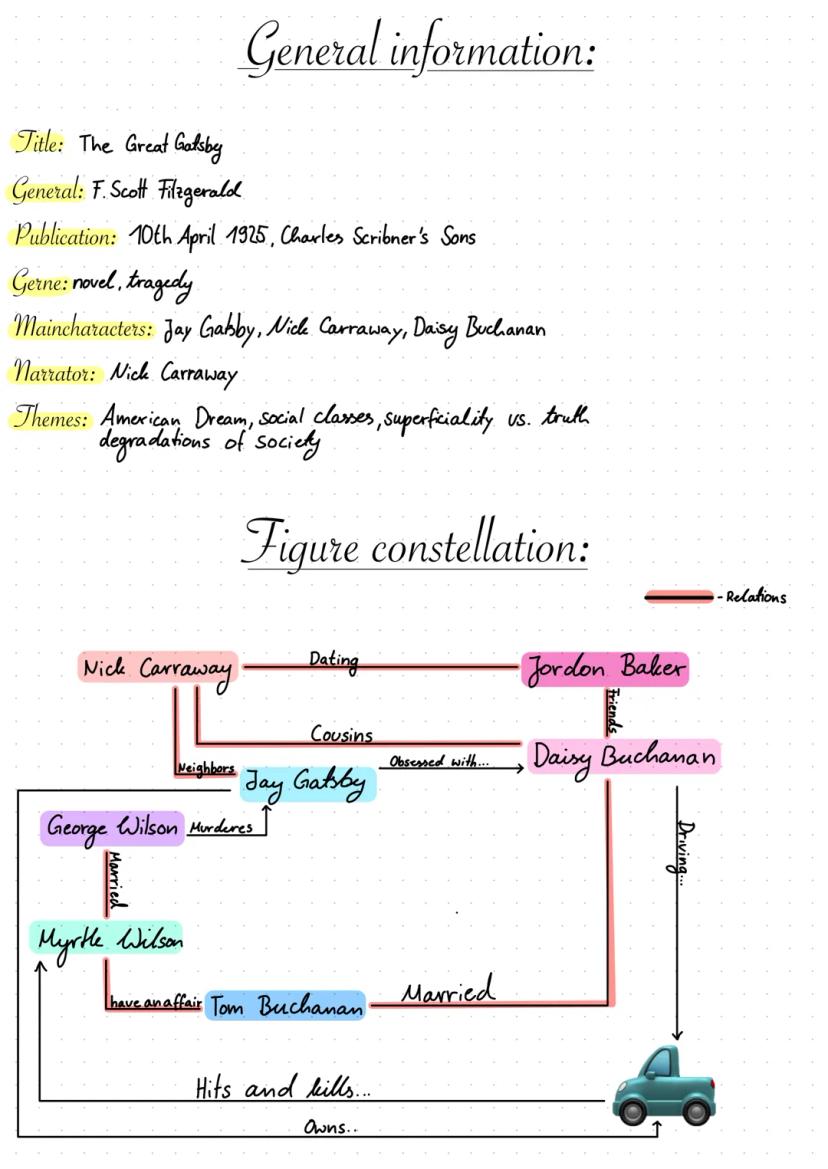 General information:
Title: The Great Gatsby
General: F. Scott Fitzgerald
Publication: 10th April 1925, Charles Scribner's Sons
Gerne: novel, tragedy
Maincharacters: Jay Gatsby, Nick Carraway, Daisy Buchanan
Narrator: Nick Carraway
Themes: American Dream, social classes, superficiality vs. truth
degradations of society
Figure constellation:
- Relations
Nick Carraway
Dating
Jordon Baker
Friends
Cousins
Daisy Buchanan
Neighbors
Jay Gatsby
Obsessed with...
George Wilson
Murderes
Driving...
Married
Myrtle Wilson
have an affair
Tom Buchanan
Married
Hits and kills...
Owns..